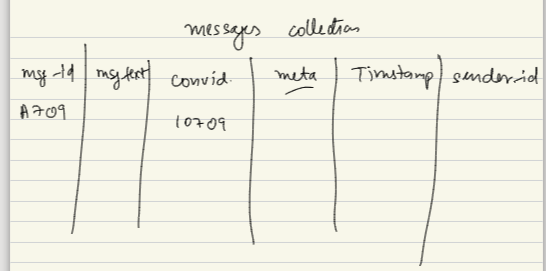 messages collection
msg-id msgtext convid. meta Timstamp sender-id
A709 10709